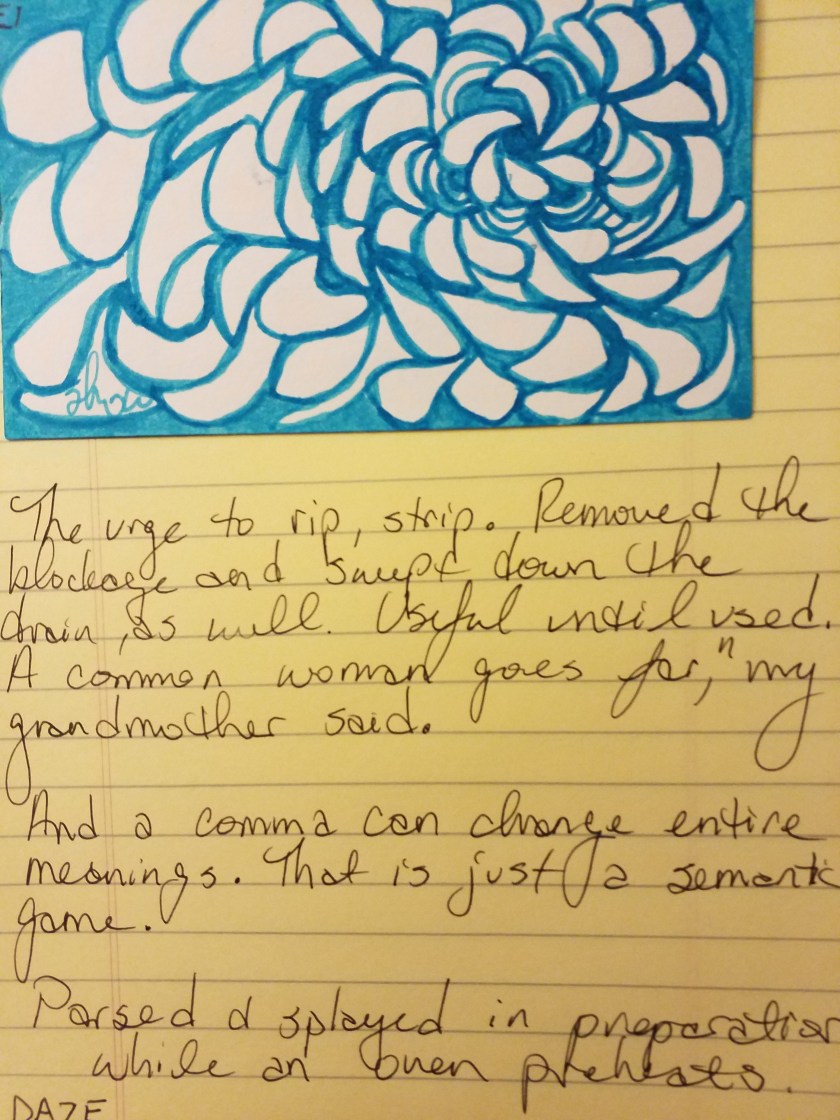 The urge to rip, strip. Removed the
blockage and swept down the
drain, as well. Useful until used.
A common woman goes far," my
grandmother said.
And a comma can change entire
meanings. That is just a semantic
game.
Parsed d splayed in preparation
while an oven preheats.
DAZE